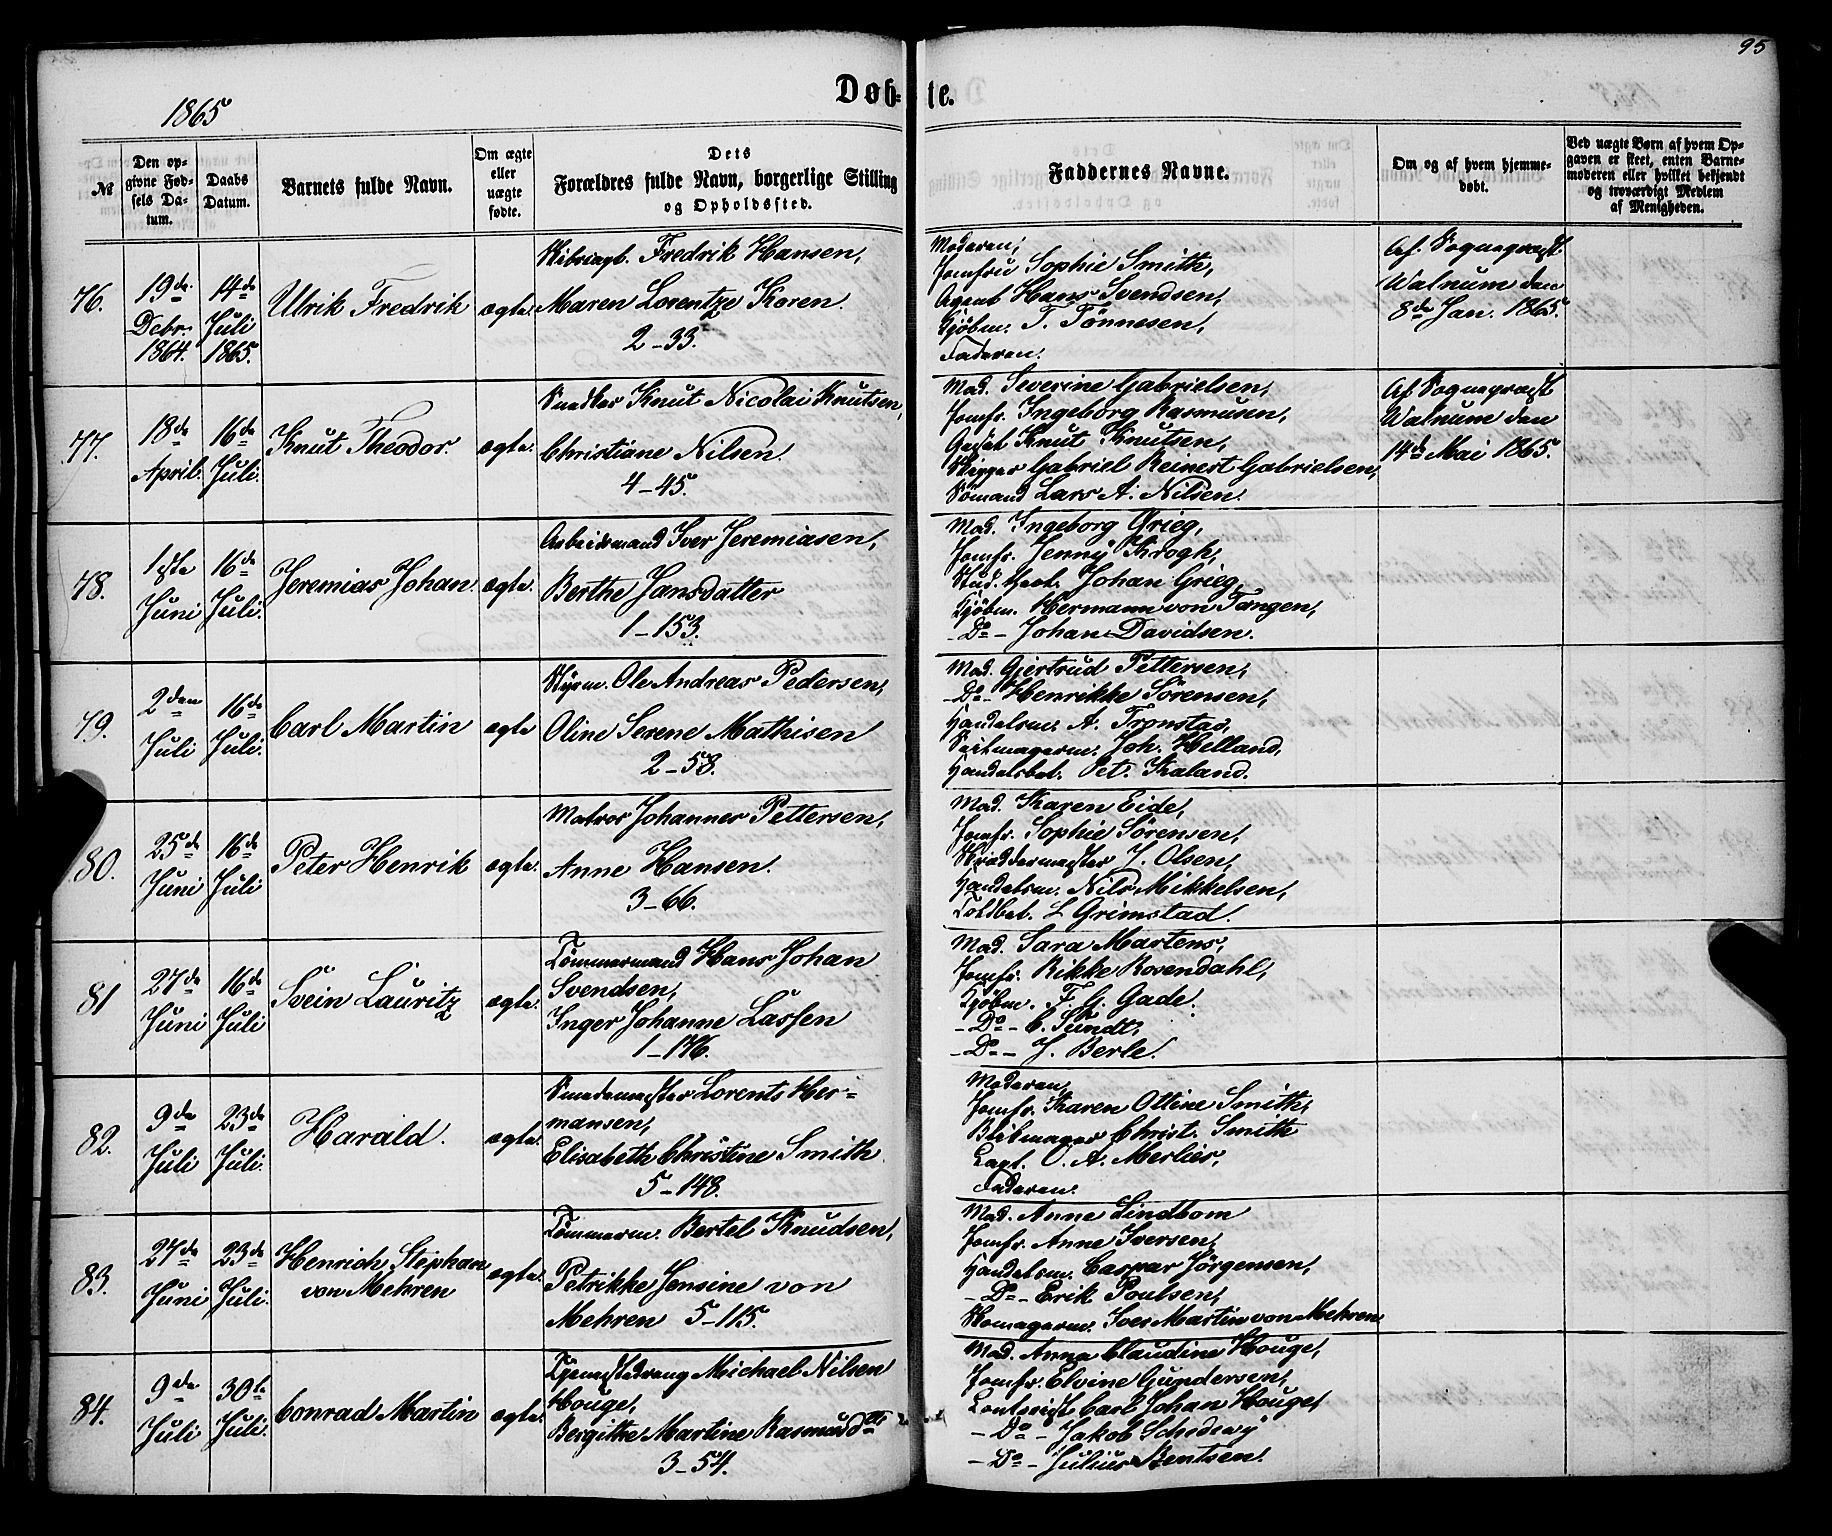 95
1865
Døb- te.
№
Den opgivne Fødsels Datum.
Daabs Datum.
Barnets fulde Navn.
Om ægte eller uægte fødte.
Dets Forældres fulde Navn, borgerlige Stilling og Opholdssted.
Faddernes Navne.
Om og af hvem hjemmedøbt.
Ved uægte Børn af hvem Opgaven er skeet, enten Barnemoderen eller hvilket bekjendt og troværdigt Medlem af Menigheden.
76.
19de Debr. 1864.
14de Juli 1865.
Ulrik Fredrik
ægte
Skibsingb. Fredrik Hansen,
Maren Lorentze Koren.
2-33.
Moderen,
Jomfru Sophie Smith,
Agent Hans Svendsen,
Kjöbm. T. Tönnesen,
Faderen.
Af Sognepræst
Walnum den
8de Jan. 1865.
77.
18de April.
16de Juli.
Knut Theodor.
ægte.
Snedker Knut Nicolai Knutsen,
Christiane Nilsen.
4-45.
Mad. Severine Gabrielsen,
Jomfr. Ingeborg Rasmusen,
Knut Knutsen,
Skipper Gabriel Reinert Gabrielsen,
Sömand Lars A. Nilsen.
Af Sognepræst
Walnum den
14de Mai 1865.
78.
1ste Juni
16de Juli.
Jeremias Johan.
ægte.
Arbeidsmand Iver Jeremiasen,
Berthe Jansdatter
1-153.
Mad. Ingeborg Grieg,
Jomfr. Jenny Krogh,
Stud. Johan Grieg,
Kjöbm. Hermann von Tangen,
- Do - Johan Davidsen.
79.
2den Juli
16de Juli.
Carl Martin
ægte
Styrm. Ole Andreas Pedersen,
Oline Serene Mathisen
2-58.
Mad. Gjertrud Pettersen,
-Do- Henrikke Sörensen,
Handelsm. A. Tronstad,
Seilmagerm. Joh. Helland,
Handelsbet. Pet. Kaland.
80.
25de Juni
16de Juli
Peter Henrik
ægte.
Matros Johannes Pettersen,
Anne Hansen.
3-66.
Mad. Karen Eide,
Jomfr. Sophie Sörensen,
Skræddermester J. Olsen,
Handelsm. Nils Mikkelsen,
Toldbet. L Grimstad.
81
27de Juni
16de Juli
Svein Lauritz
ægte.
Tömmermand Hans Johan
Svendsen,
Inger Johanne Lassen
1-176.
Mad. Sara Martens,
Jomfr. Rikke Rosendahl,
Kjöbm. F. G. Gade.
- Do - C. Sundt,
- Do - J. Berle.
82.
9de Juli
23de Juli.
Harald.
ægte.
Smedemester Lorents Her-
mansen,
Elisabeth Christine Smith.
5-148.
Moderen,
Jomfr. Karen Ottine Smith,
Blikmager Christ. Smith
Capt. O. A. Merlies,
Faderen.
83.
27de Juni
23de Juli.
Henrich Stephan
von Mehren
ægte.
Tömmerm. Bertel Knudsen,
Petrikke Jensine von
Mehren 5-115.
Mad. Anne Lindbom
Jomfr. Anne Iversen,
Handelsm. Caspar Jörgensen,
- Do - Erik Poulsen,
Skomagerm. Iver Martin von Mehren
84.
9de Juli
30te Juli.
Conrad Martin
ægte.
Tjenestedreng Michael Nilsen
Houge,
Bergitte Martine Rasmusdtr
3-54.
Mad. Anna Claudine Houge,
Jomfr. Elvine Gundersen,
Contorist Carl Johan Houge,
- Do - Jakob Schedewy
- Do - Julius Bentsen.